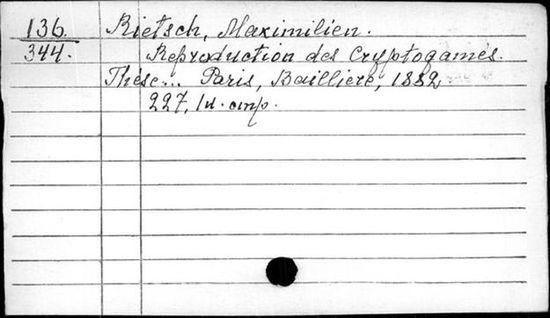 136. Rietsch, Maximilien.
344. Reproduction des Cryptogames.
Thèse... Paris, Bailliere, 1882.
227,